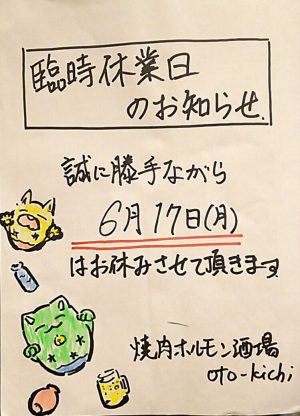 臨時休業日
のお知らせ.
誠に勝手ながら
6月17日(月)
はお休みさせて頂きます
焼肉ホルモン酒場
oto-kichi